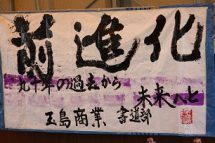 前進化
九十年の過去から
未来へと
玉島商業 書道部